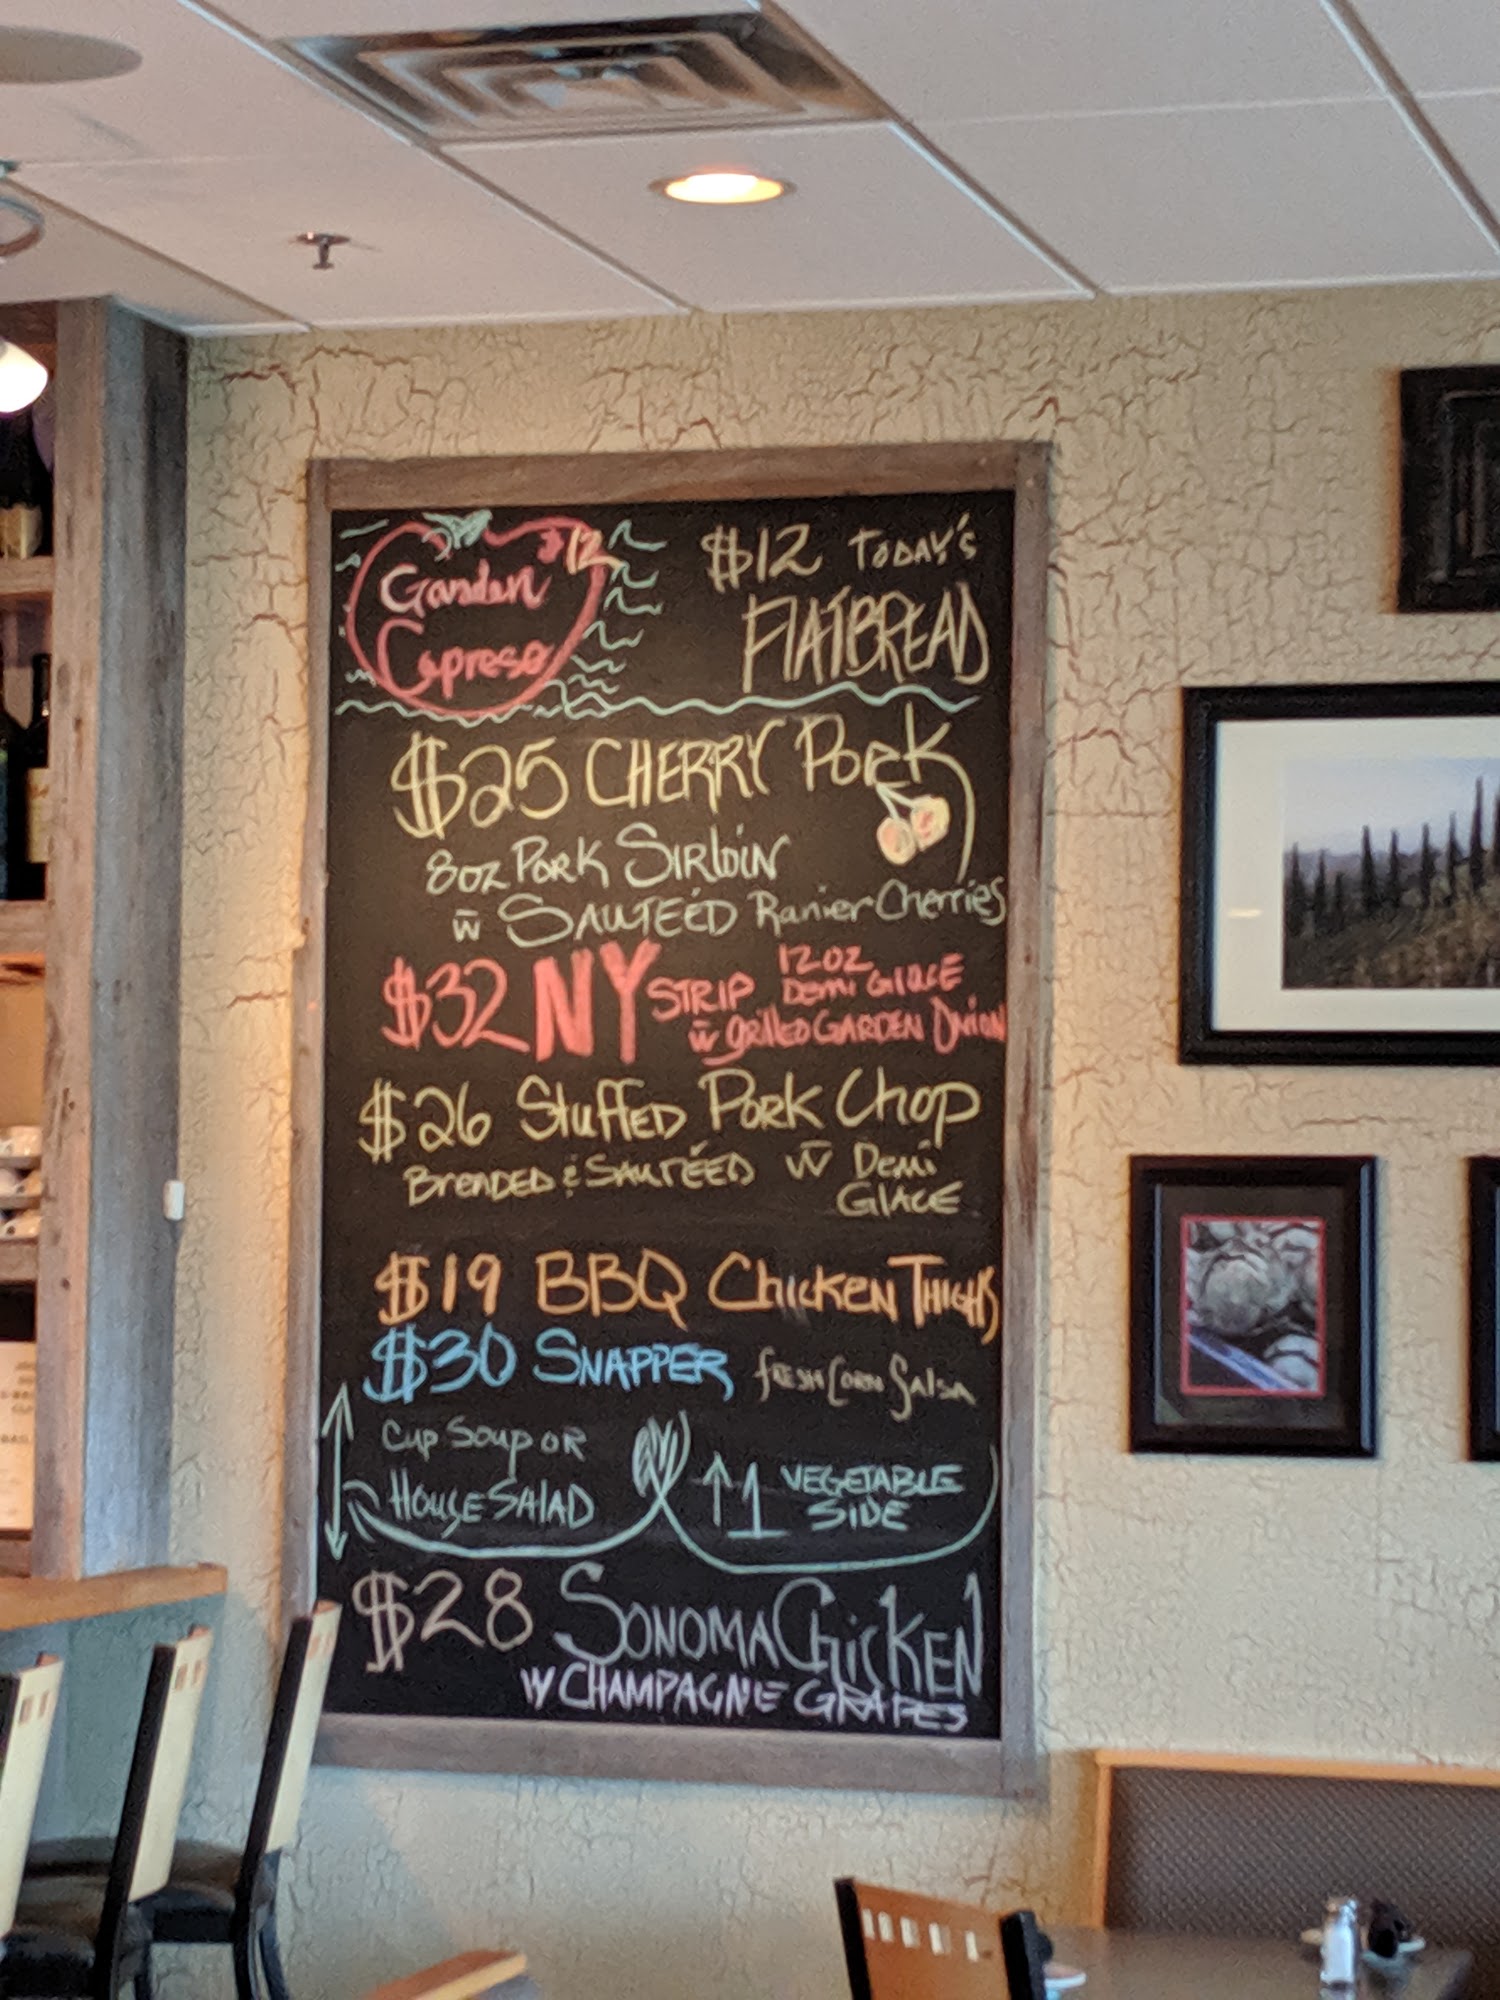 $12
Garden
Caprese
$12 TODAY'S
FLATBREAD
$25 CHERRY PORK
8oz PORK SIRLOIN
w̄ SAUTÉED Ranier Cherries
$32 NY STRIP 12oz
Demi GLACE
w̄ grilled GARDEN Onion
$26 Stuffed PORK Chop
BreADED & SAUTÉED w̄ Demi
GLACE
$19 BBQ Chicken THIGHS
$30 SNAPPER fresh Corn Salsa
Cup Soup OR
House SALAD
↑ 1 VEGETABLE
SIDE
$28 SONOMA ChicKEN
W CHAMPAGNE GRAPES